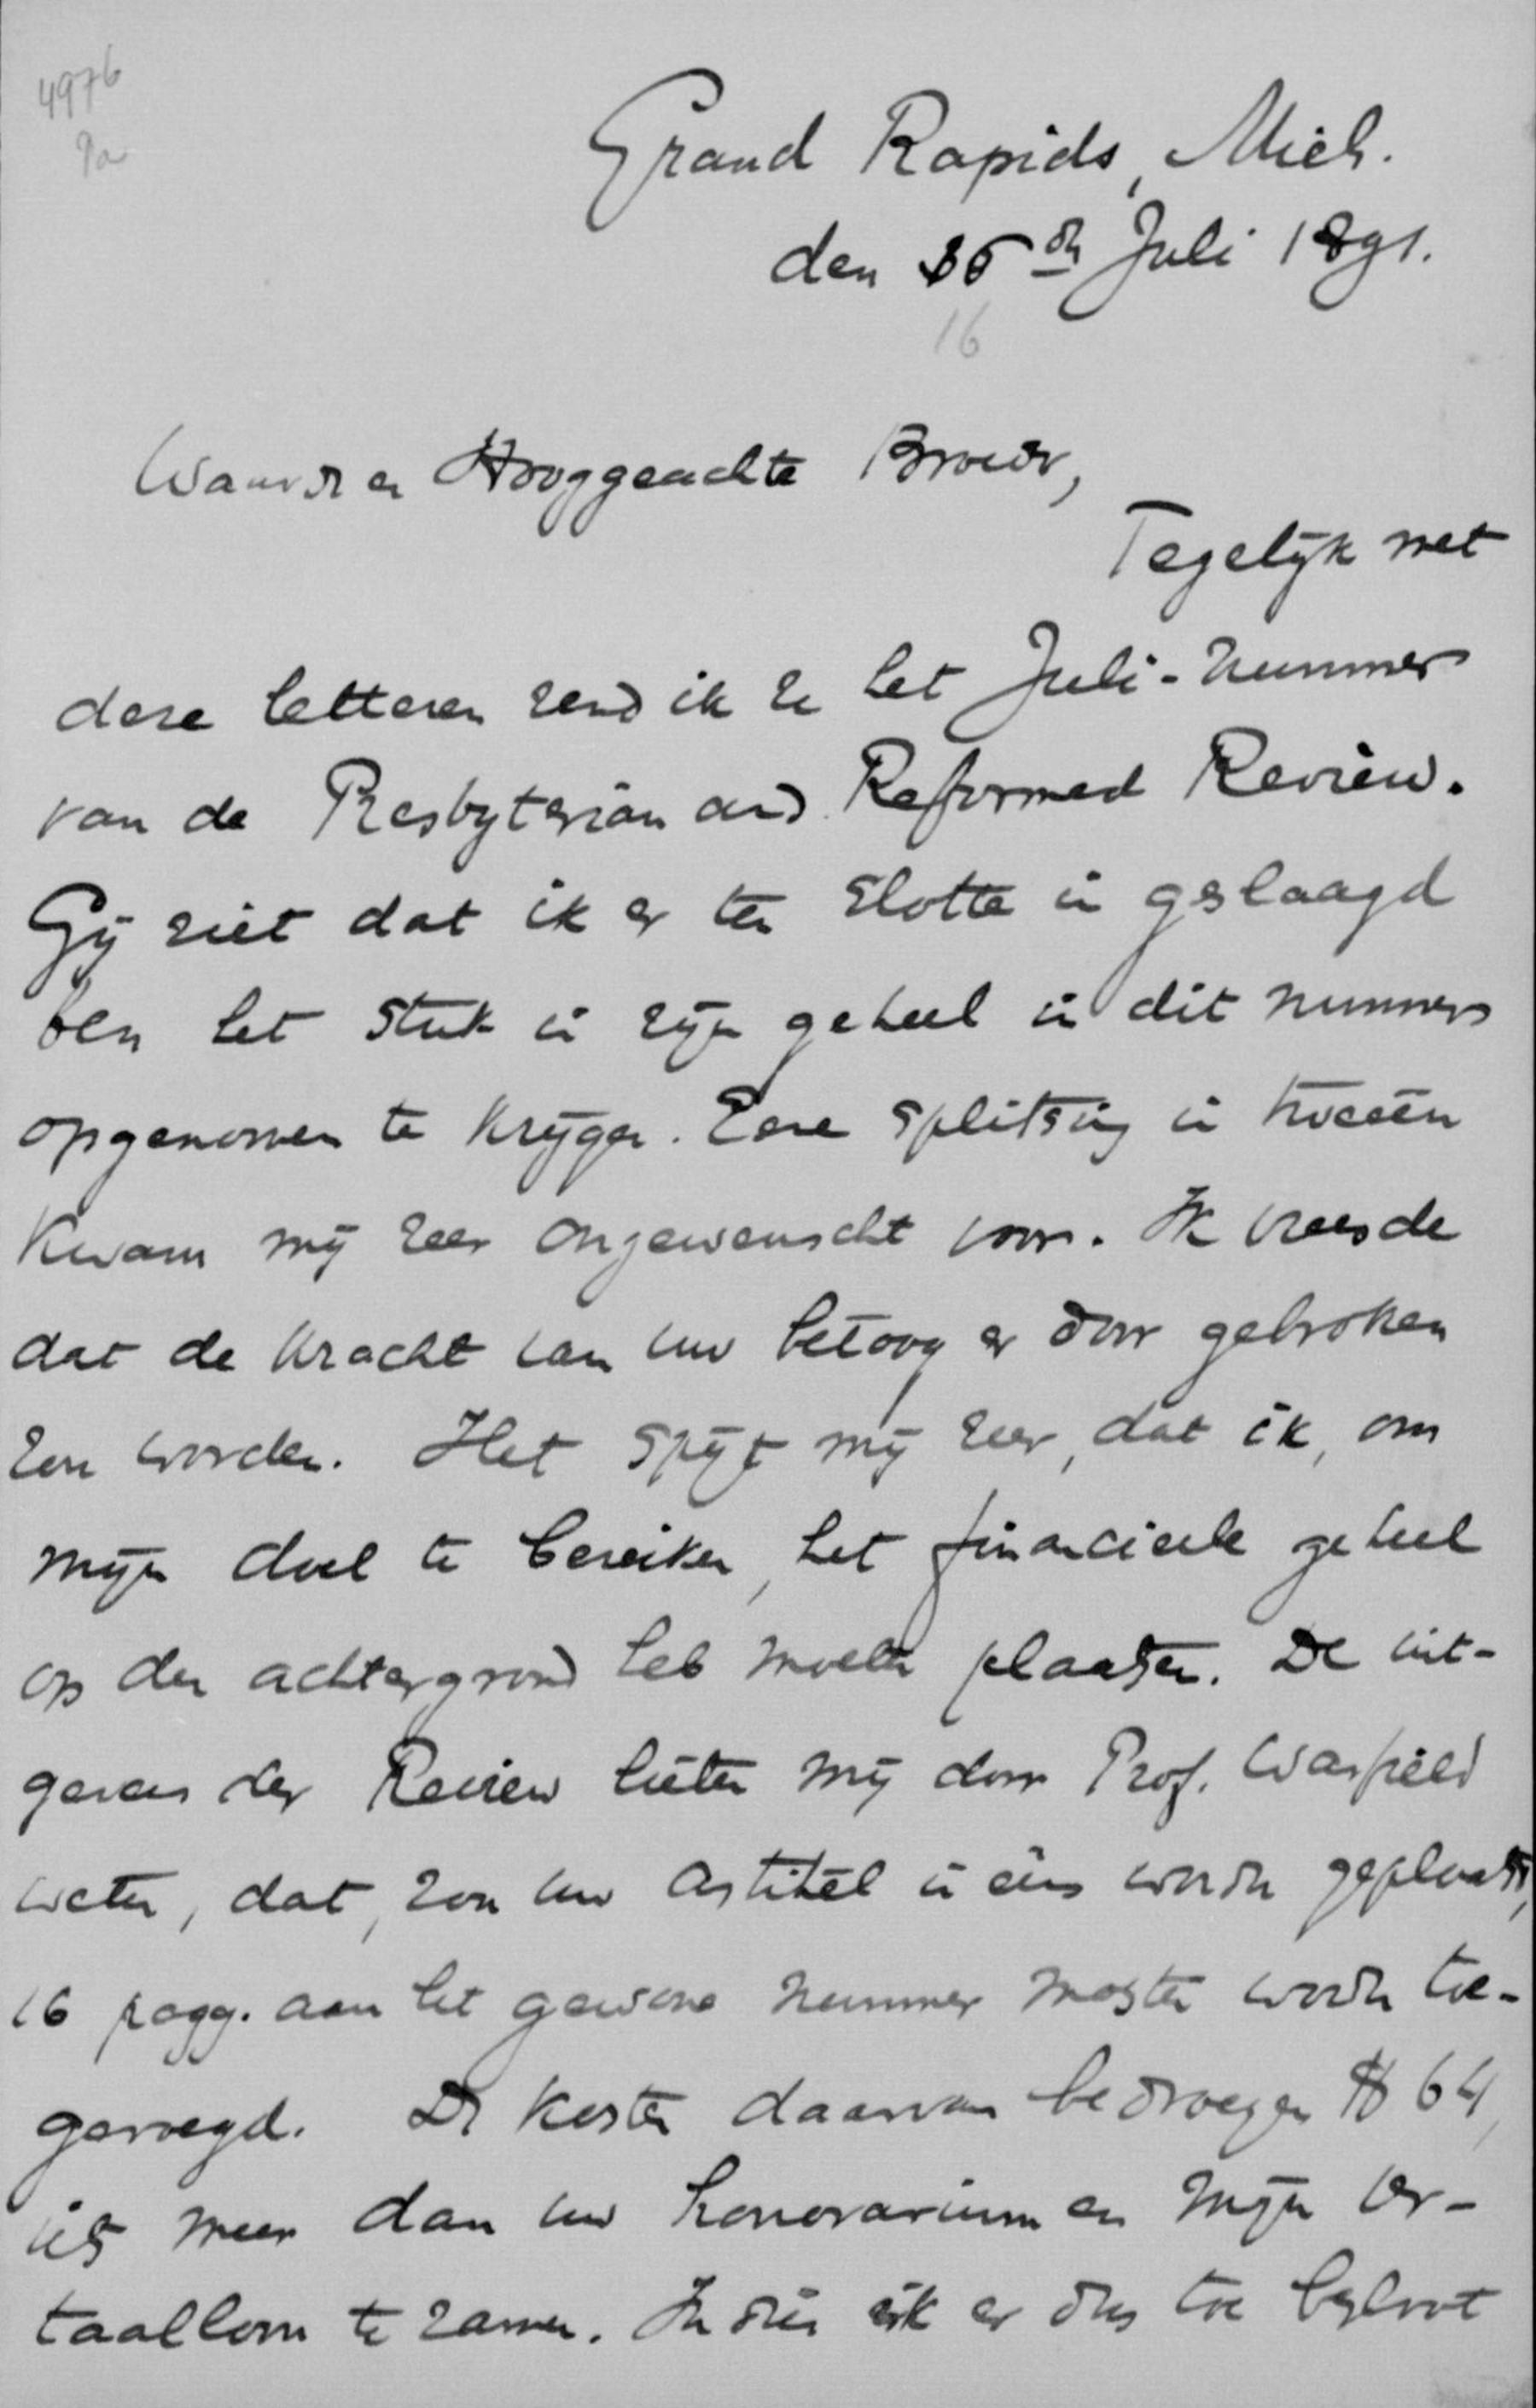 4976
9a
Grand Rapids, Mich.
den 16en Juli 1891.
16
Waarde en Hooggeachte Broeder,
Tegelijk met
deze letteren zend ik U het Juli-nummer
van de Presbyterian and Reformed Review.
Gij ziet dat ik er ten slotte in geslaagd
ben het stuk in zijn geheel in dit nummer
opgenomen te krijgen. Eene splitsing in tweeën
kwam mij zeer ongewenscht voor. Ik vreesde
dat de kracht van uw betoog er door gebroken
zou worden. Het spijt mij zeer, dat ik, om
mijn doel te bereiken, het financieele geheel
op den achtergrond heb moeten plaatsen. De uit-
gevers der Review lieten mij door Prof. Warfield
weten, dat, zou uw artikel in eens worden geplaatst,
16 pagg. aan het gewone nummer moesten worden toe-
gevoegd. De kosten daarvan bedroegen $ 64,
iets meer dan uw honorarium en mijn ver-
taalloon te zamen. Indien ik er dus toe besloot